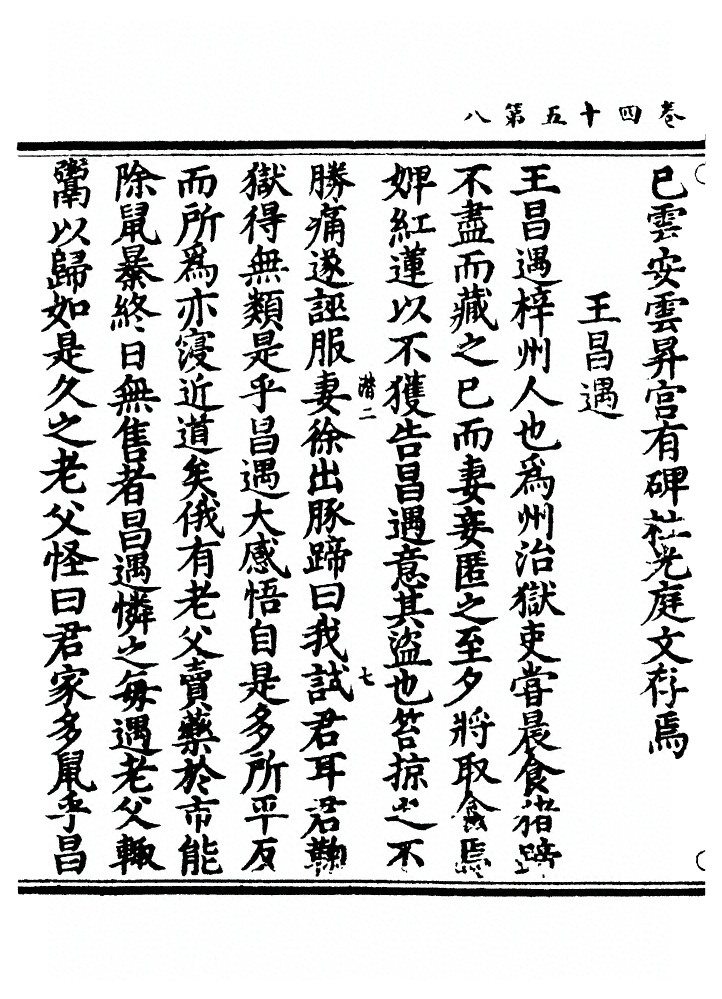 卷四十五第八
巳雲安雲昇宮有碑杜光庭文存焉
王昌遇
王昌遇梓州人也爲州治獄吏嘗晨食猪蹄
不盡而藏之巳而妻妾匿之至夕將取食焉
婢紅蓮以不獲告昌遇意其盜也笞掠之不
勝痛遂誣服妻徐出豚蹄曰我試君耳君鞠
獄得無類是乎昌遇大感悟自是多所平反
而所爲亦寖近道矣俄有老父賣藥於市能
除鼠暴終日無售者昌遇憐之每遇老父輙
鬻以歸如是久之老父怪曰君家多鼠乎昌
潜二
七